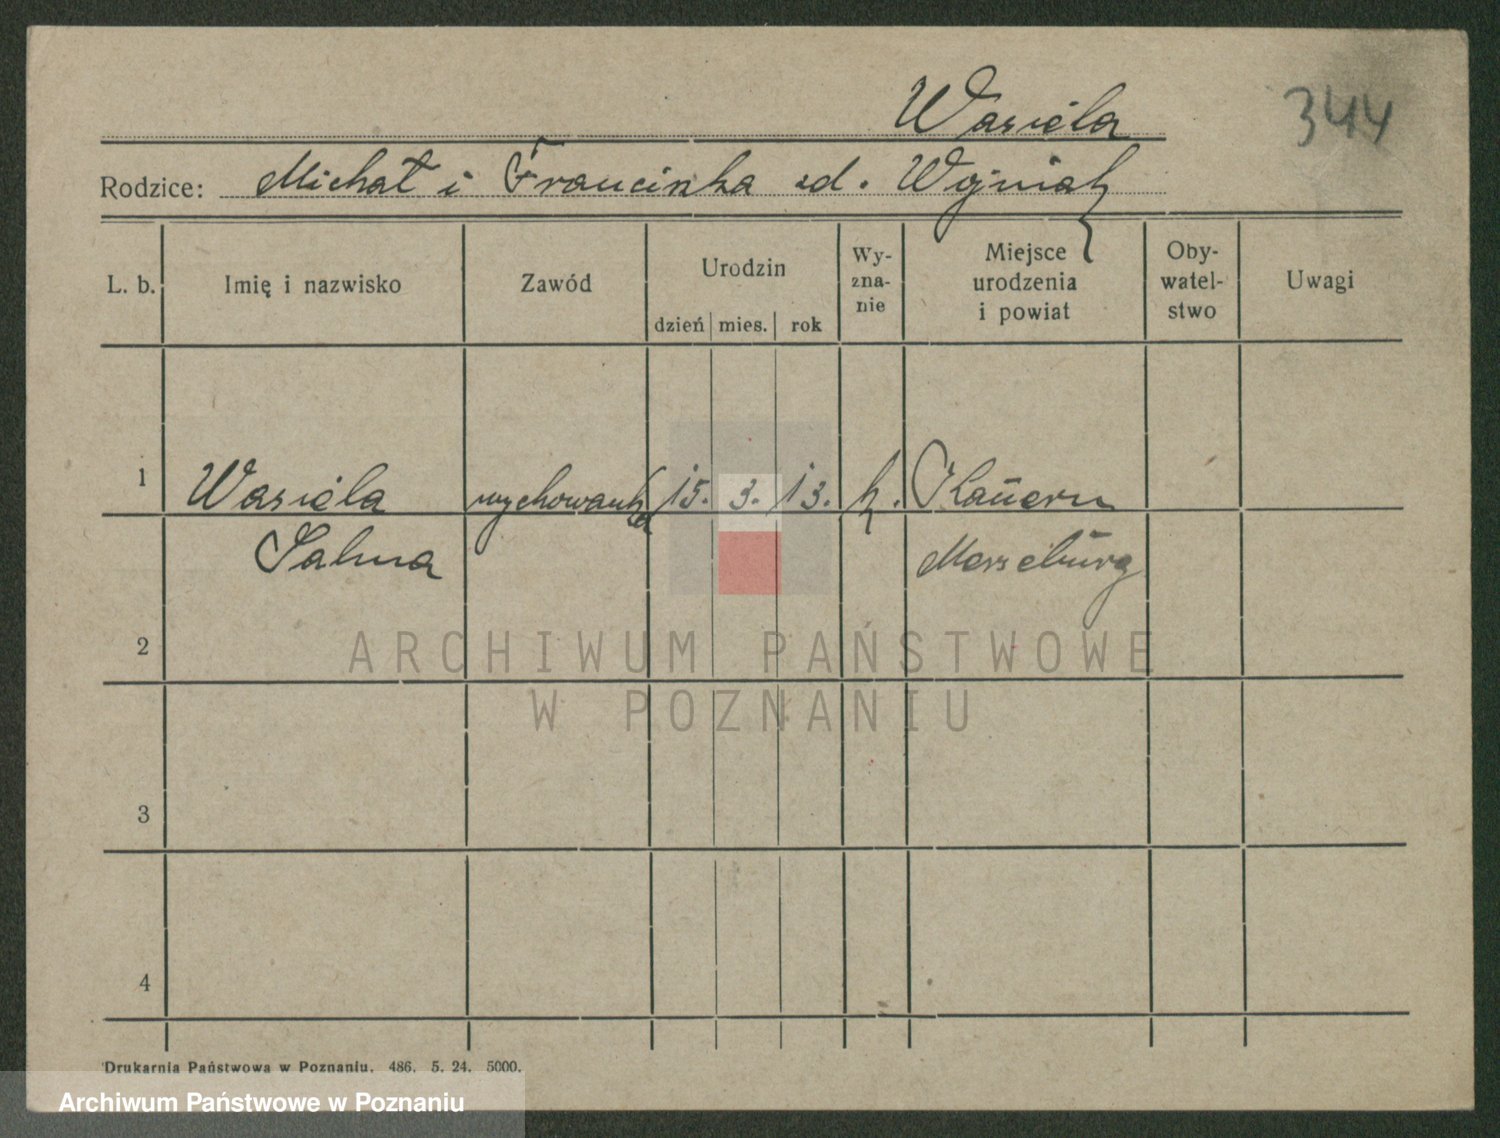 Wasiela
344
Rodzice: Michał i Franciszka zd. Woźniak
L. b.
Imię i nazwisko
Zawód
Urodzin
dzień mies. rok
Wy-
zna-
nie
Miejsce
urodzenia
i powiat
Oby-
watel-
stwo
Uwagi
1 Wasiela wychowanka 15. 3. 13. k.
Salma
Merseburg
2
3
4
ARCHIWUM PAŃSTWOWE
W POZNANIU
Drukarnia Państwowa w Poznaniu. 486. 5. 24. 5000.
Archiwum Państwowe w Poznaniu